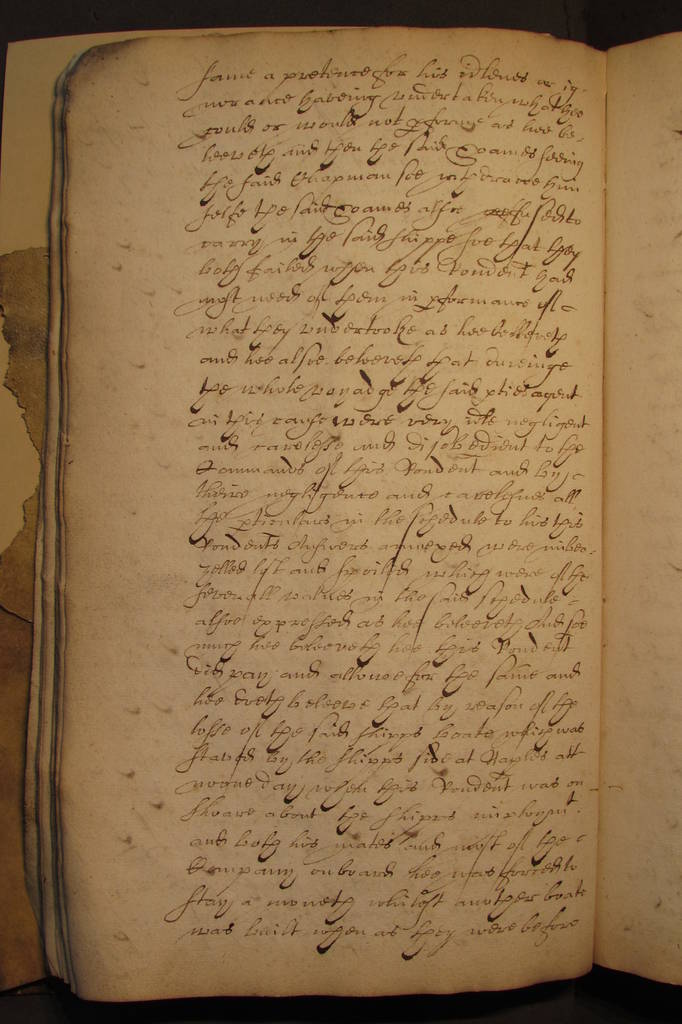 same a pretence for his idlenes or ig-
norance haveing undertaken what hee
could or would not pforme as hee be-
leeveth and then the said Soames seeing
the said Chapman soe withdrawe him
selfe the said Soames alsoe refused to
carry in the said shippe soe that they
both failed when this Rondent had
most need of them in pformance of
what they undertooke as hee beleeveth
and hee alsoe beleeveth that dureinge
the whole voyadge the said pties agent
in this cause were very idle negligent
and carelesse and disobedient to the
Commands of this Rondent and by
theire negligence and carelesnes all
the pticulars in the schedule to his this
Rondents Answers annexed were imbea-
zelled lost and spoiled which were of the
severall values in the said schedule
alsoe expressed as hee beleeveth And soe
much hee beleeveth hee this Rondent
did pay and allowe for the same and
hee doth beleeve that by reason of the
losse of the said shipps boate which was
staved by the shipps side at Naples att
noone day when this Rondent was on
shoare about the shipps imploymt
and both his mates and most of the
Company onboard hee was forced to
stay a moneth whilest another boate
was built when as they were before